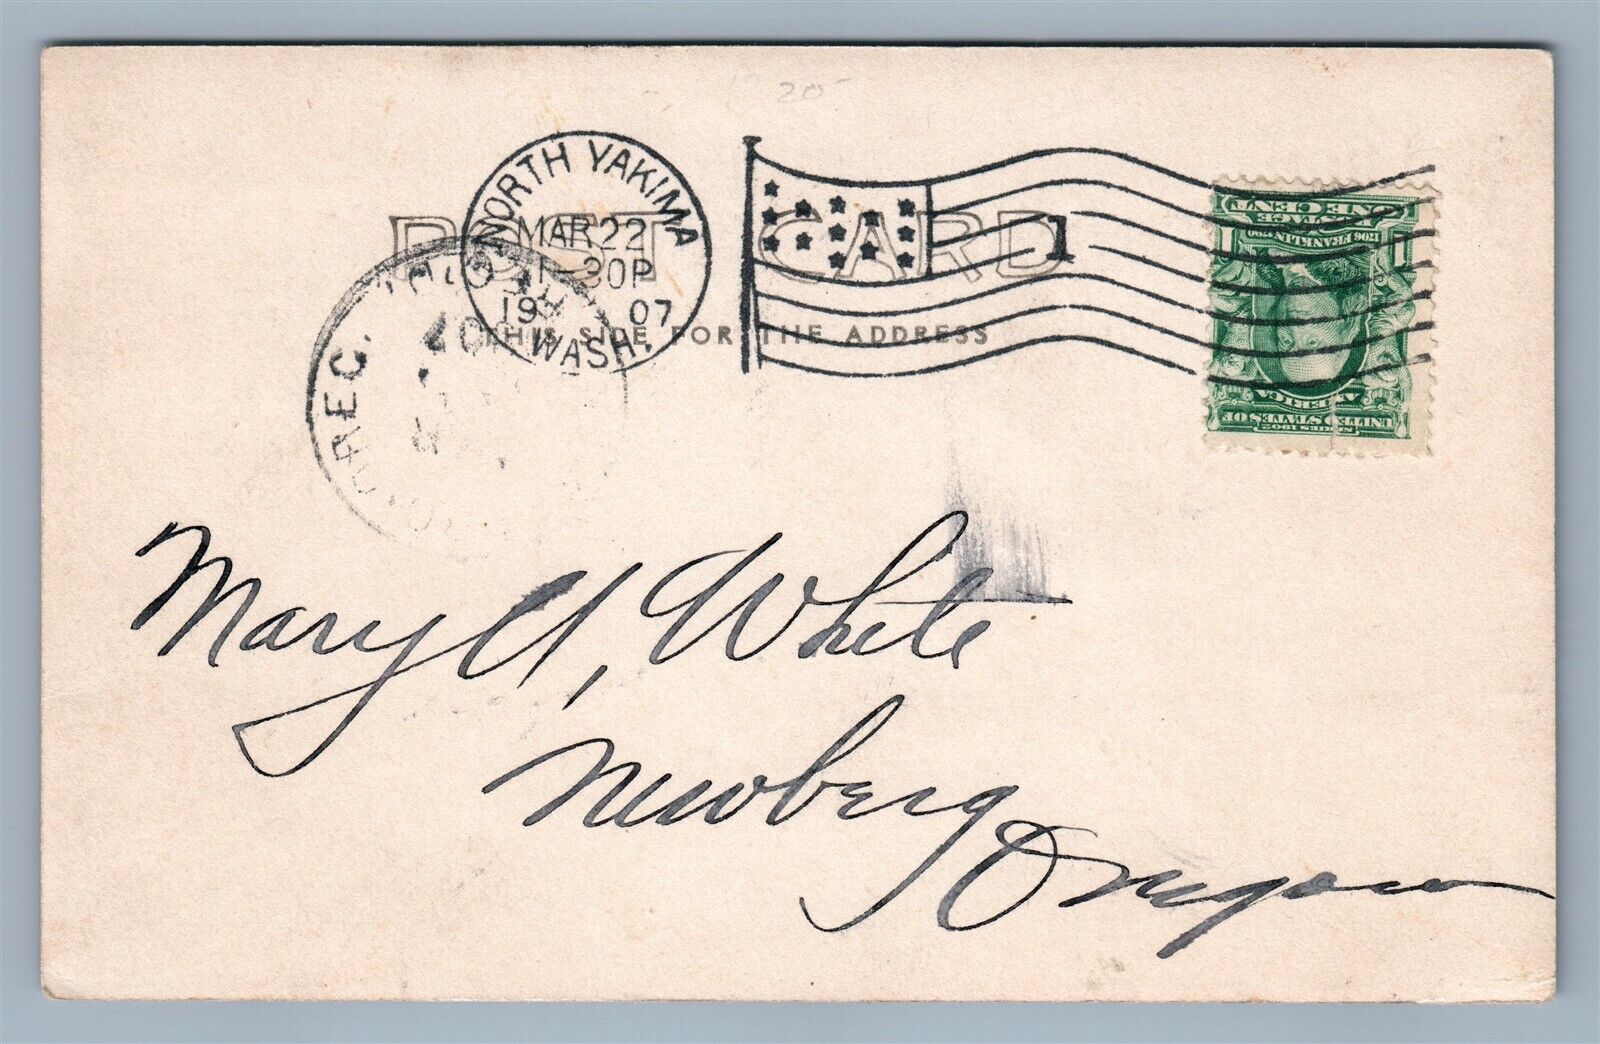 20
NORTH YAKIMA
MAR 22
1-30P
19 07
WASH.
1
POST CARD
THIS SIDE FOR THE ADDRESS
REC.
07
ONE CENT
POSTAGE
1706 FRANKLIN 1790
1 1
AMERICA
UNITED STATES OF
SERIES 1902
Mary U, White
Newberg
Oregon